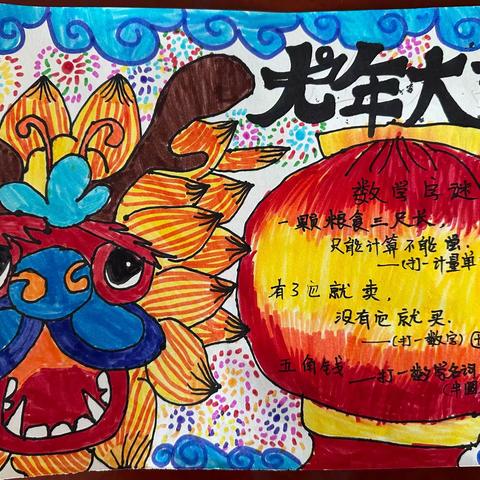 龙年大
数学字谜
一颗粮食三尺长,
只能计算不能尝.
——(打一计量单
有了它就卖,
没有它就买.
——(打一数字)
五角钱——打一数学名词
(半圆